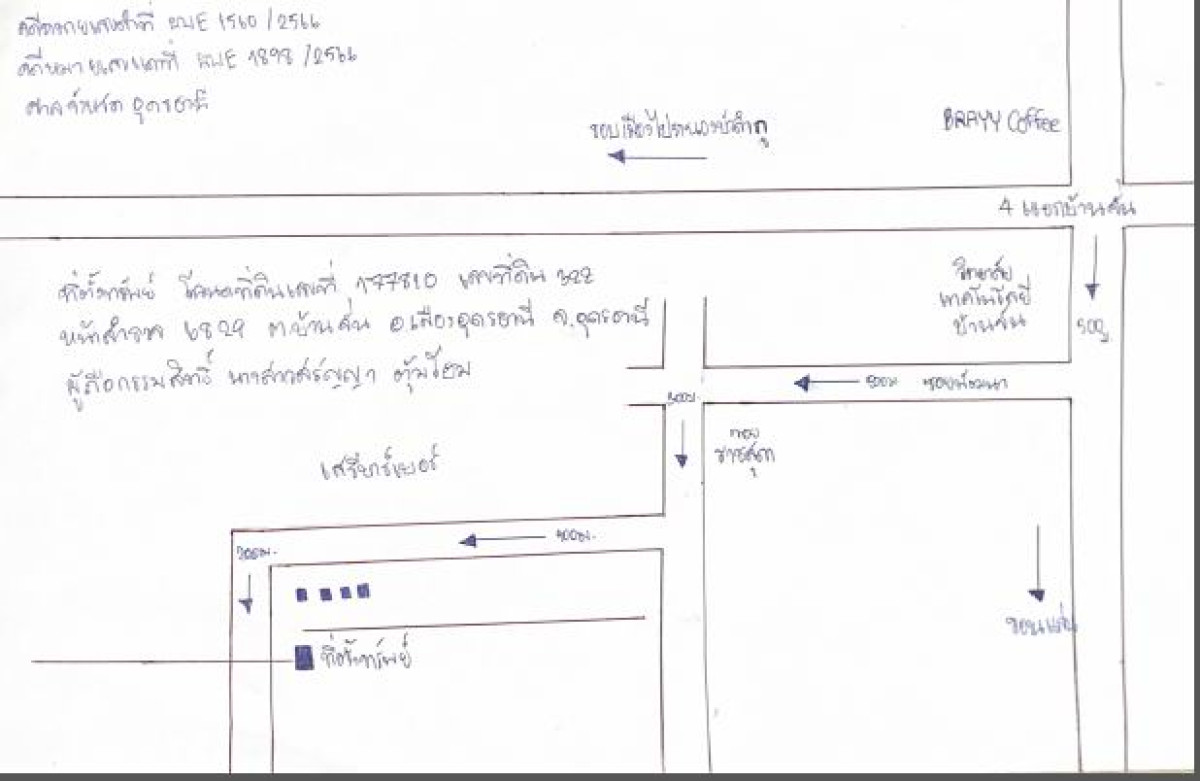 คดีหมายเลขดำที่ ผบE 1560/2566
คดีหมายเลขแดงที่ ผบE 1898/2566
ศาลจังหวัด อุดรธานี
BRAYY Coffee
4 แยกบ้านจั่น
ที่ตั้งทรัพย์ โฉนดที่ดินเลขที่ 177810 เลขที่ดิน 322
หน้าสำรวจ 6829 ต.บ้านจั่น อ.เมืองอุดรธานี จ.อุดรธานี
ผู้ถือกรรมสิทธิ์ นางสาวสรัญญา ตุ้มโฮม
วิทยาลัย
เทคโนโลยี
บ้านจั่น
500ม
500ม ซอยพัฒนา
300ม.
เสรีมาร์เบอร์
400ม.
200ม.
ที่ตั้งทรัพย์
ขอนแก่น